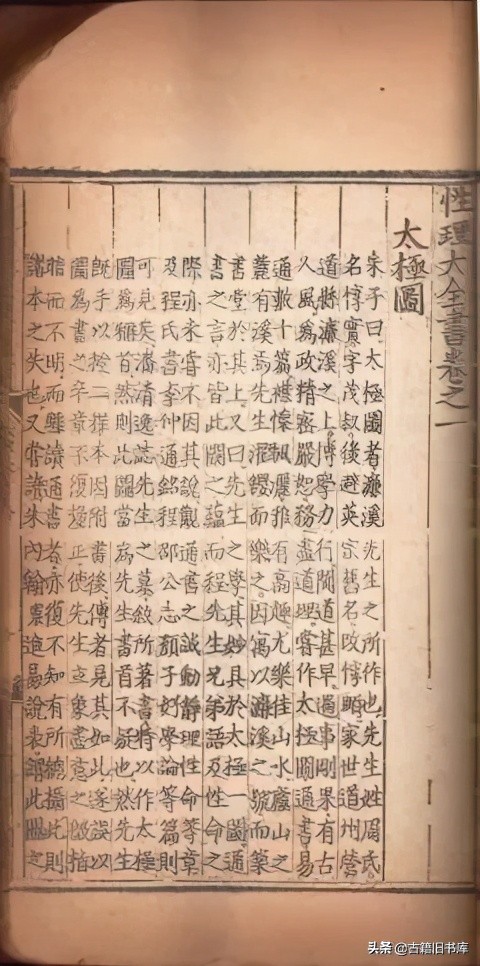 性理大全書卷之一
太極圖
朱子曰太極圖者濂溪先生之所作也先生姓周氏
名惇實字茂叔後避英宗舊名改惇頤家世道州營
道縣濂溪之上博學力行聞道甚早遇事剛果有古
人風爲政精密嚴恕務盡道理嘗作太極圖通書易
通數十篇襟懷飄灑雅有高趣尤樂佳山水廬山之
麓有溪焉先生濯纓而樂之因寓以濂溪之號而築
書堂於其上又曰先生之學其妙具於太極一圖通
書之言亦皆此圖之蘊而程先生兄弟語及性命之
際亦未嘗不因其說觀通書之誠動靜理性命等章
及程氏書李仲通銘程邵公志顏子好學論等篇則
可見矣潘清逸誌先生之墓敘所著書特以作太極
圖爲稱首然則此圖當爲先生書首不疑也然先生
旣手以授二程本因附書後傳者見其如此遂誤以
圖爲書之卒章不復釐正使先生立象盡意之微指
暗而不明而驟讀通書者亦復不知有所總攝此則
諸本之失也又嘗讀朱內翰震進易說表謂此圖之
头条 @古籍旧书库